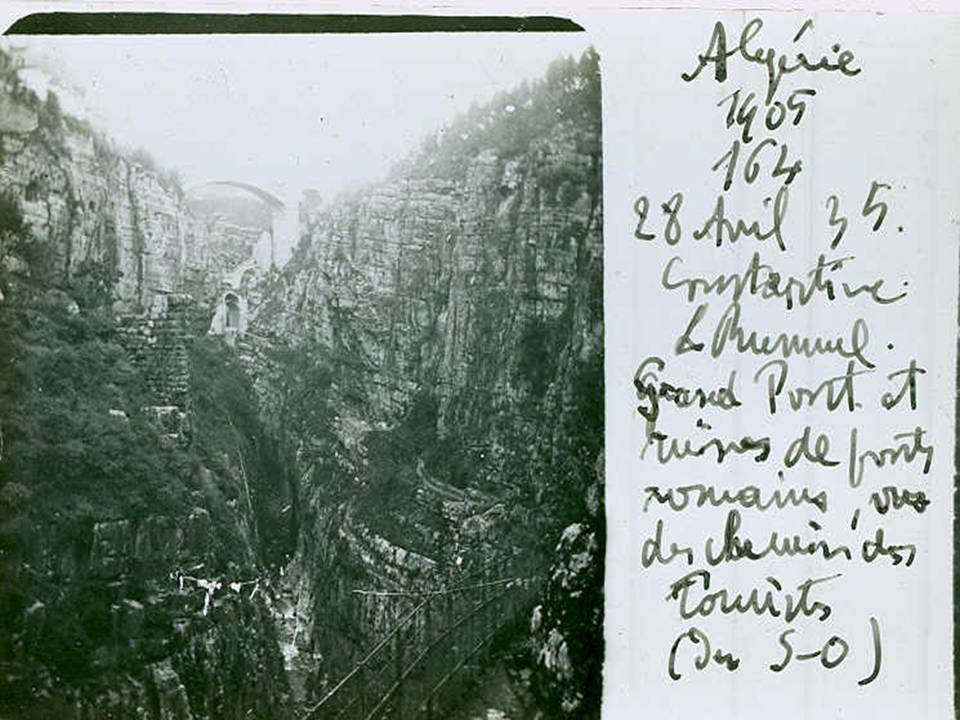 Algérie
1905
164
28 Avril 35.
Constantine.
Le Rummel.
Grand Pont et
ruines de ponts
romains, vus
du chemin des
Touristes
(Du S-O)